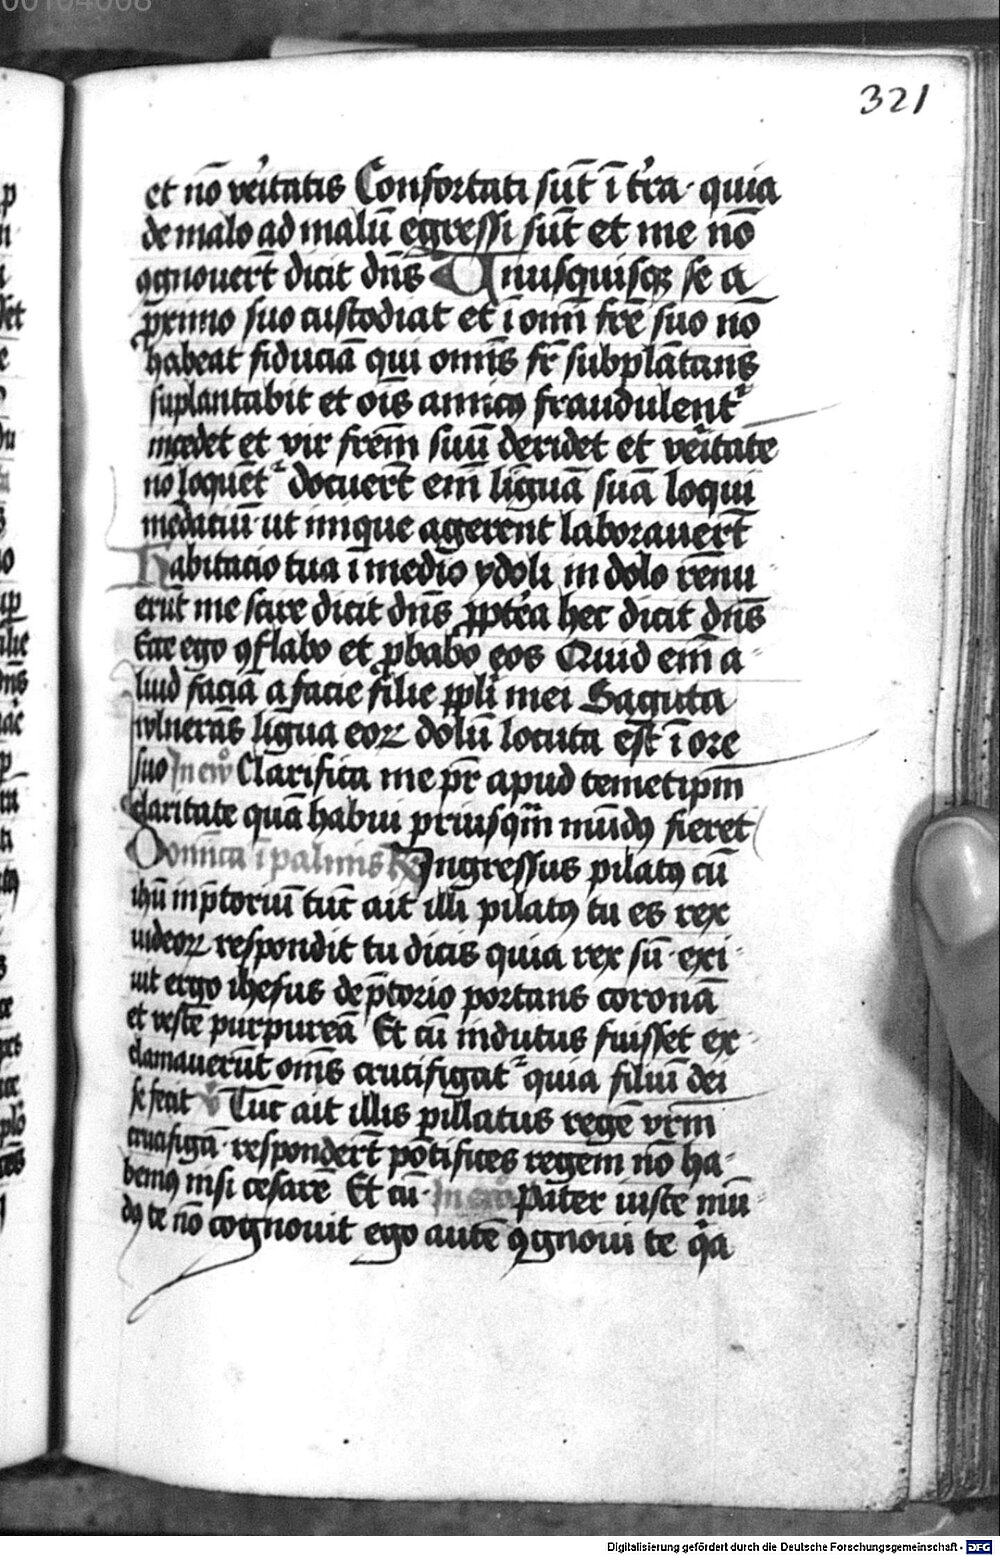 321
et nō veritatis Confortati sūt ī tr̄a · quia
de malo ad malū egressi sūt et me nō
ꝯgnouerūt dicit dn̄s Unusquisqꝫ se a
ꝓximo suo custodiat et ī omī frē suo nō
habeat fiduciā qui om̄is fr̄ subplātans
suplantabit et oīs amicꝯ fraudulent᷑
incedet et vir frēm suū deridet et veritate
nō loquēt᷑ docuerūt em̄ liguā suā loqui
mēdaciū · ut inique agerent laborauer̄t
Habitacio tua ī medio ydoli in dolo renu
erūt me scire dicit dn̄s ꝓpterea hec dicit dn̄s
Ecce ego ꝯflabo et ꝓbabo eos Quid em̄ a
liud faciā a facie filie ppli mei Sagitta
vlnerās ligua eoꝝ dolū locuta est ī ore
suo In ew̄ Clarifica me pr̄ apud temetip̄m
claritate quā habui priusqm̄ mūdꝯ fieret
Domīica ī palmis ℟ Ingressus pilatꝯ cū
ihū in p̄toriū tūc ait illi pilatꝯ tu es rex
iudeoꝝ respondit tu dicis quia rex sū · exi
uit ergo ihesus de p̄torio portans coronā
et vestē purpureā Et cū indutus fuisset ex
clamauerūt om̄s crucifigat᷑ quia filiū dei
se fecit ℣ Tūc ait illis pillatus regē vr̄m
crucifigā · responder̄t pōtifices regem nō ha
bemꝯ nisi cesarē Et cū · In ew̄ Pater iuste mū
dꝯ te nō cognouit ego autē ꝯgnoui te q̄a
00104008
Digitalisierung gefördert durch die Deutsche Forschungsgemeinschaft - DFG